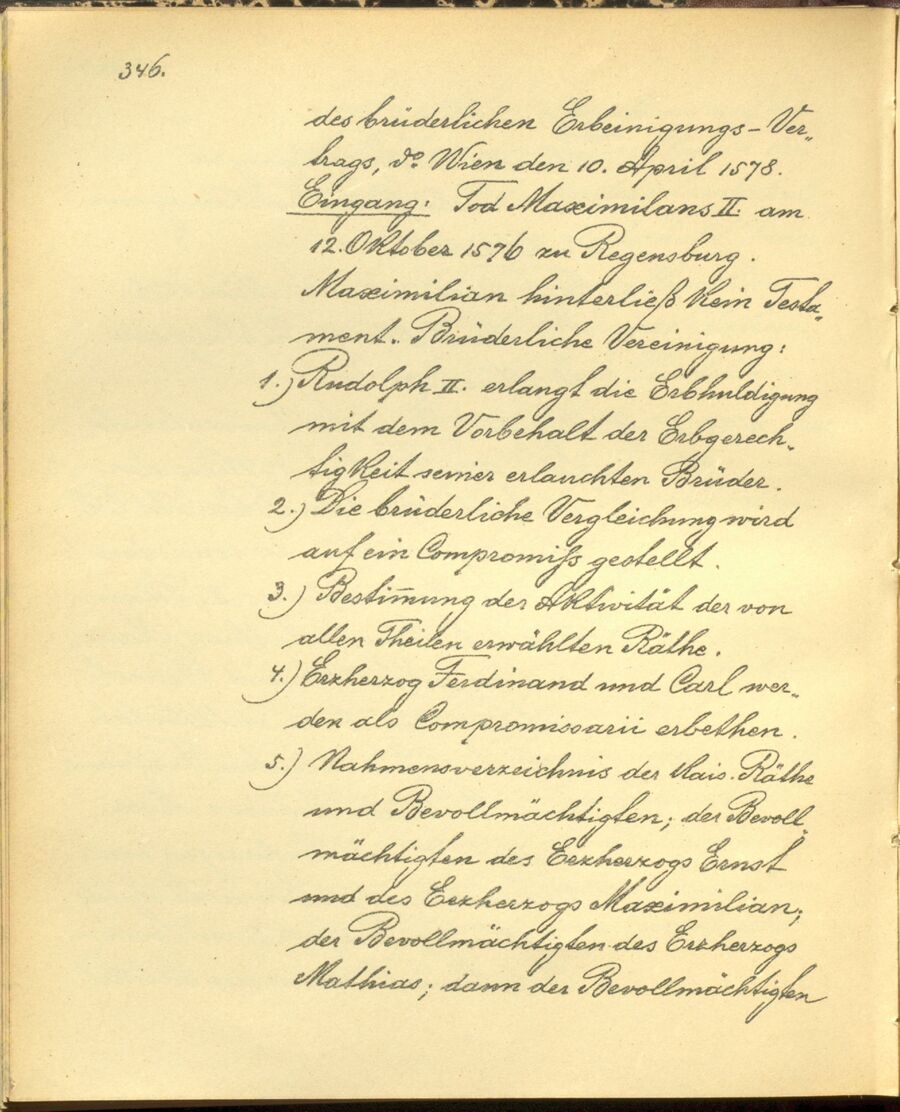 346.
des brüderlichen Erbeinigungs-Ver„
trags, do Wien den 10. April 1578.
Eingang: Tod Maximilans II. am
12. Oktober 1576 zu Regensburg.
Maximilian hinterließ kein Testa„
ment. Brüderliche Vereinigung:
1.) Rudolph II. erlangt die Erbhuldigung
mit dem Vorbehalt der Erbgerech„
tigkeit seiner erlauchten Brüder.
2.) Die brüderliche Vergleichung wird
auf ein Compromiß gestellt.
3.) Bestim̄ung der Aktivität der von
allen Theilen erwählten Räthe.
4.) Erzherzog Ferdinand und Carl wer„
den als Compromissarii erbethen.
5.) Nahmensverzeichnis der kais. Räthe
und Bevollmächtigten; der Bevoll„
mächtigten des Erzherzogs Ernst
und des Erzherzogs Maximilian;
der Bevollmächtigten des Erzherzogs
Mathias; dann der Bevollmächtigten